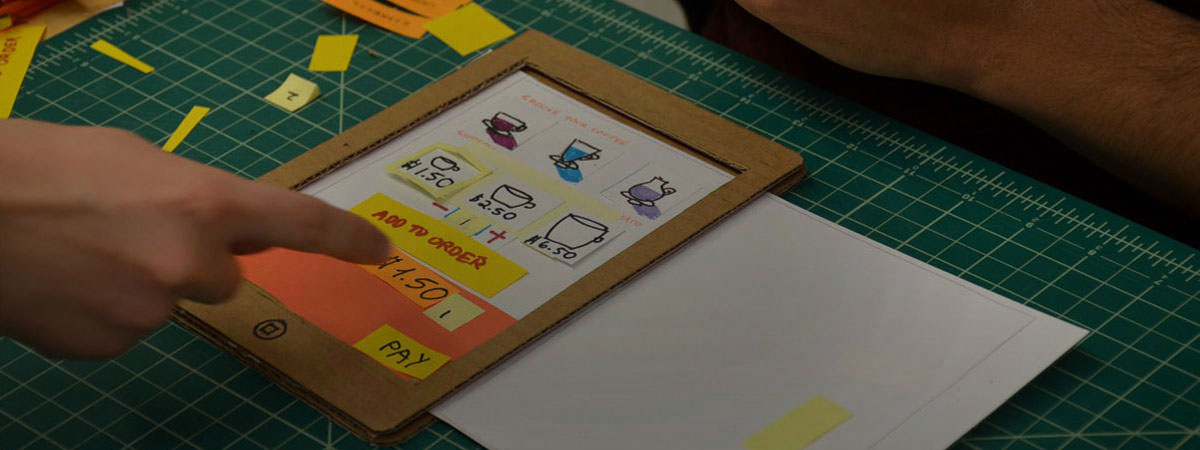 CHOOSE YOUR COFFEE
$1.50
$2.50
$6.50
- 1 +
ADD TO ORDER
$1.50
1
PAY
2
ORDER